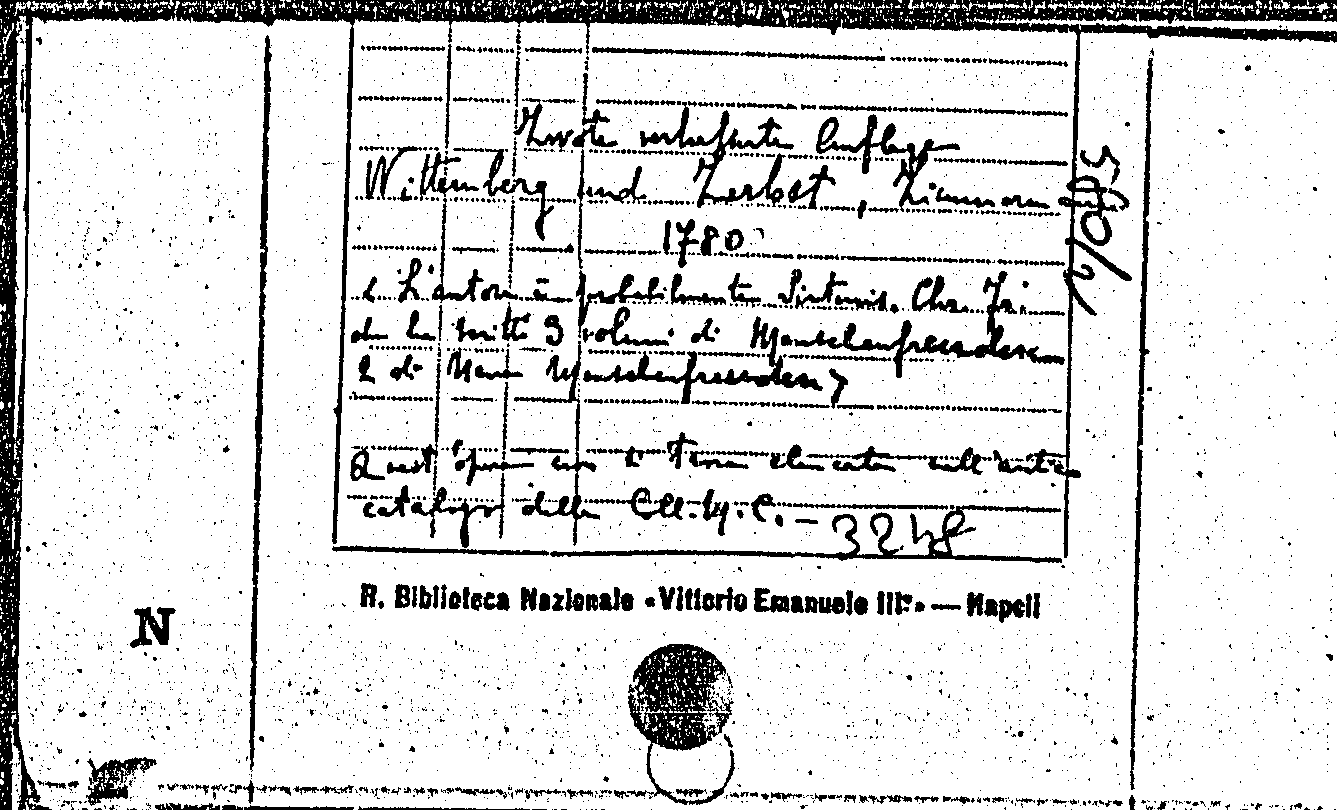 Zwote verbesserte Auflage
Wittemberg und Zerbst, Zimmermann
1780
< L'autore è probabilmente Sintenis. Chr. Fr.
che ha scritti 3 volumi di Menschenfreuden
2 di Neue Menschenfreuden >
Quest'opera era di Terza elencata nell'antico
catalogo della Coll. M. C. - 3248
R. Biblioteca Nazionale «Vittorio Emanuele III°» — Napoli
N